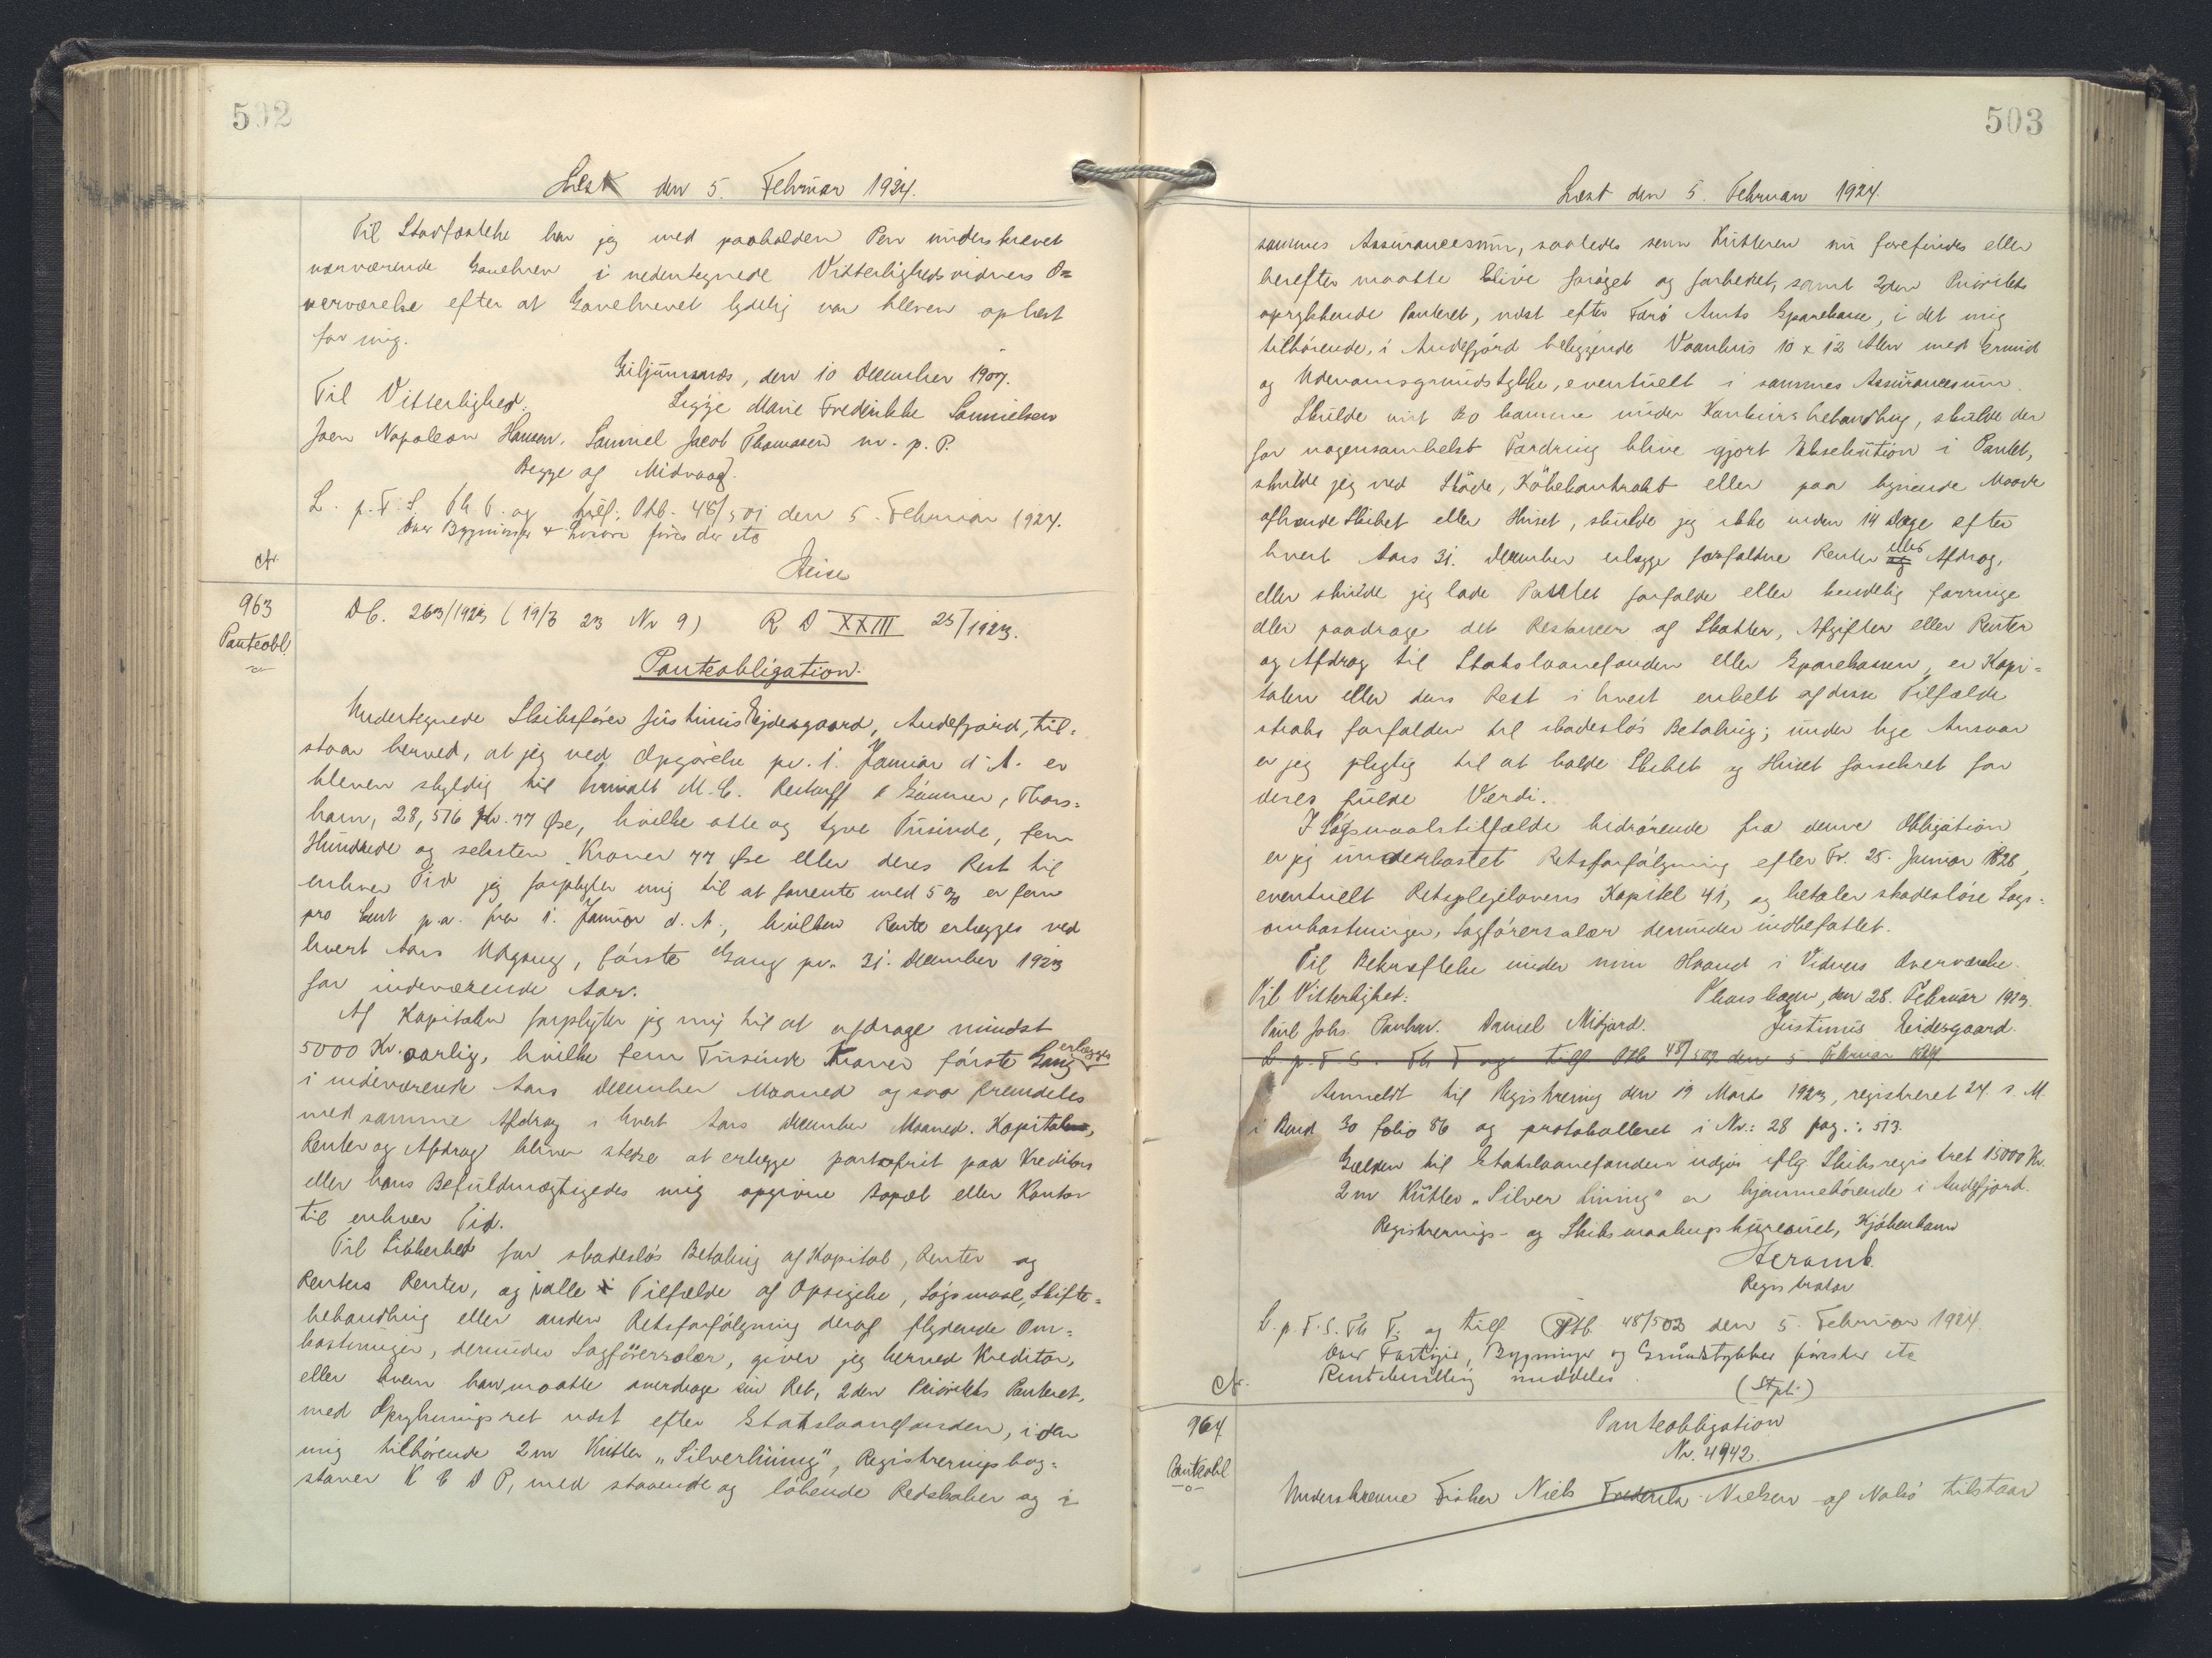 502
Læst den 5. Februar 1924.
Til Stadfæstelse har jeg med paaholden Pen underskrevet
nærværende Gavebrev i nedentegnede Vitterlighedsvidners O=
verværelse efter at Gavebrevet tydelig var bleven oplæst
for mig.
Giljumsnæs, den 10 December 1907.
Til Vitterlighed. Sigge Marie Fredrikke Samuelsen
Joen Napoleon Hansen. Samuel Jacob Thomasen m. p. P.
Begge af Midvaag.
L. p. F. S. Th T. og tilf. Ptb. 48/501 den 5. Februar 1924.
Over Bygninger & Løsøre føres der etc
Heise
963
Panteobl.
Db. 263/1923 (19/3 23 Nr 9) R D XXIII 25/1923.
Panteobligation.
Undertegnede Skibsfører Justinus Ejdesgaard, Andefjord, til=
staar herved, at jeg ved Opgørelse pr. 1. Januar d. A. er
bleven skyldig til M. C. Restorff & Sønner, Thors=
havn, 28,516 Kr. 77 Øre, hvilke otte og tyve Tusinde, fem
Hundrede og seksten Kroner 77 Øre eller deres Rest til
enhver Tid jeg forpligter mig til at forrente med 5 % er fem
pro Cent p.a. fra 1. Januar d. A., hvilken Rente erlægges ved
hvert Aars Udgang, første Gang pr. 31. December 1923
for indeværende Aar.
Af Kapitalen forpligter jeg mig til at afdrage mindst
5000 Kr. aarlig, hvilke fem Tusinde Kroner første Gang erlægges
i indeværende Aars December Maaned og saa fremdeles
med samme Afdrag i hvert Aars December Maaned. Kapital,
Renter og Afdrag bliver stedse at erlægge portofrit paa Kreditors
eller hans Befuldmægtigedes mig opgivne Bopæl eller Kontor
til enhver Tid.
Til Sikkerhed for skadesløs Betaling af Kapital, Renter og
Renters Renter, og i alle Tilfælde af Opsigelse, Søgsmaal, Skifte=
behandling eller anden Retsforfølgning deraf flydende Om=
kostninger, derunder Sagførersalær, giver jeg herved Kreditor,
eller hvem han maatte overdrage sin Ret, 2den Prioritets Panteret,
med Oprykningsret næst efter Statslaanefonden, i den
mig tilhørende 2 m Kutter "Silverlining", Registreringsbog=
staver K C D P, med staaende og løbende Redskaber og i
503
Læst den 5. Februar 1924.
sammes Assurancesum, saaledes som Kutteren nu forefindes eller
herefter maatte blive forøget og forbedret, samt 2den Prioritets
oprykkende Panteret, næst efter Færø Amts Sparekasse, i det mig
tilhørende, i Andefjord beliggende Vaanhus 10 x 12 Alen med Grund
og Udenomsgrundstykke, eventuelt i sammes Assurancesum.
Skulde mit Bo komme under Konkursbehandling, skulde der
for nogensomhelst Fordring blive gjort Eksekution i Pantet,
skulde jeg ved Skøde, Købekontrakt eller paa lignende Maade
afhænde Skibet eller Huset, skulde jeg ikke inden 14 Dage efter
hvert Aars 31. December erlægge forfaldne Renter og eller Afdrag,
eller skulde jeg lade Pantet forfalde eller kendelig forringe
eller paadrage det Restancer af Skatter, Afgifter eller Renter
og Afdrag til Statslaanefonden eller Sparekassen, er Kapi=
talen eller dens Rest i hvert enkelt af disse Tilfælde
straks forfalden til skadesløs Betaling; under lige Ansvar
er jeg pligtig til at holde Skibet og Huset forsikret for
deres fulde Værdi.
I Søgsmaalstilfælde hidrørende fra denne Obligation
er jeg underkastet Retsforfølgning efter Fr. 25. Januar 1828,
eventuelt Retsplejelovens Kapitel 41, og betaler skadesløse Sags=
omkostninger, Sagførersalær derunder indbefattet.
Til Bekræftelse under min Haand i Vidners Overværelse.
Til Vitterlighet: Thorshavn, den 28. Februar 1923.
Paul Johs. Danielsen. Daniel Midjord. Justinus Eidesgaard.
L. p. F. S. Th T og tilf Ptb 48/502 den 5. Februar 1924
Anmeldt til Registrering den 19 Marts 1923, registreret 24. s. M.
i Bind 30 folio 86 og protokolleret i Nr.: 28 pag.: 513.
Gælden til Statslaanefonden udgør iflg Skibsregistret 15000 Kr.
2 m Kutter "Silver Lining" er hjemmehørende i Andefjord.
Registrerings- og Skibsmaalingsbureauet, Kjøbenhavn
Registrator
L. p. F. S. Th T. og tilf Ptb 48/502 den 5. Februar 1924.
Over Fartøjer, Bygninger og Grundstykker føres der etc
meddeles
(Stpl.)
964
Panteobl
Panteobligation
Nr. 4942.
Underskrevne Fisker Niels Frederik Nielsen af Nolsø tilstaar